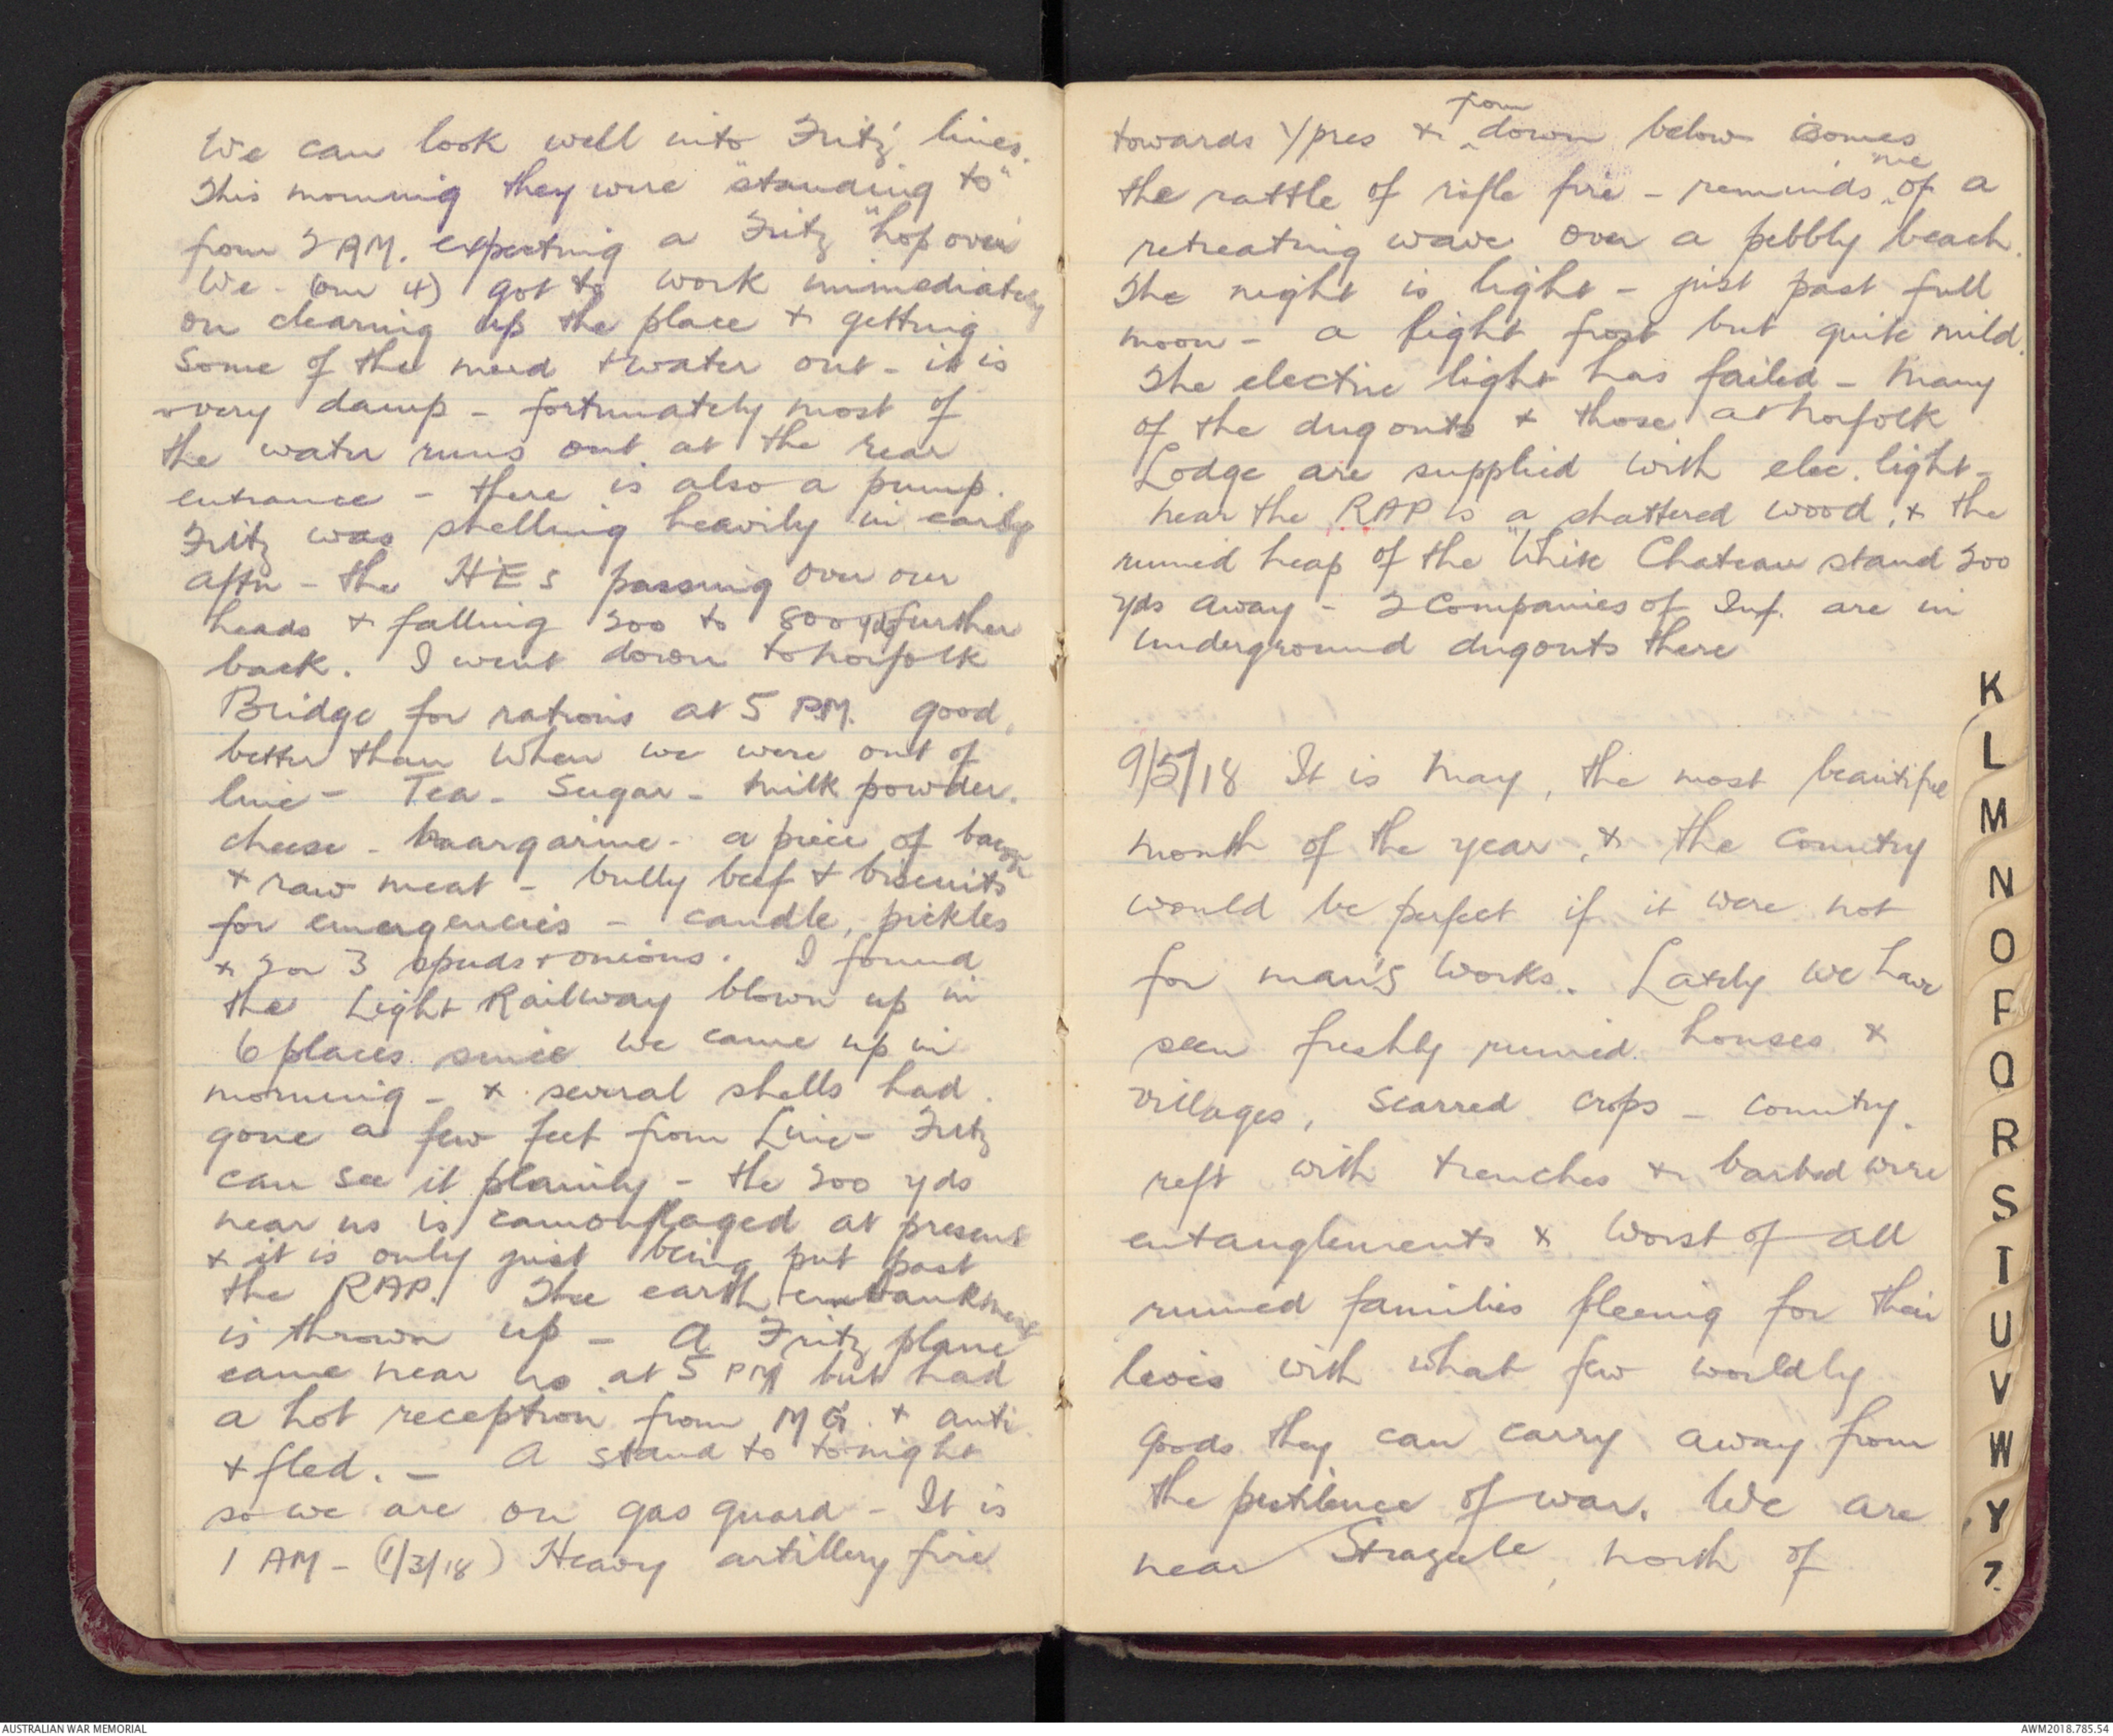 We can look well into Fritz' lines.
This morning they were "standing to"
from 2 AM. expecting a Fritz "hop over
We - (our 4) got to work immediately
on clearing up the place & getting
some of the mud & water out - it is
very damp - fortunately most of
the water runs out at the rear
entrance - there is also a pump.
Fritz was shelling heavily in early
aftn - the HES passing over our
heads & falling 200 to 800 yds further
back. I went down to Norfolk
Bridge for rations at 5 PM. good,
better than when we were out of
line - Tea - Sugar - milk powder.
cheese - margarine - a piece of bacon
& raw meat - bully beef & biscuits
for emergencies - candle, pickles
& 2 or 3 spuds & onions. I found
the Light Railway blown up in
6 places since we came up in
morning - & several shells had
gone a few feet from Line - Fritz
can see it plainly - the 200 yds
near us is camouflaged at present
& it is only just being put past
the RAP. The earth embankment
is thrown up - A Fritz plane
came near us at 5 PM but had
a hot reception from MG. & anti
& fled. - A stand to tonight
so we are on gas guard - It is
1 AM - (1/3/18) Heavy artillery fire
towards Ypres & from down below comes
the rattle of rifle fire - reminds me of a
retreating wave over a pebbly beach.
The night is light - just past full
moon - a light frost but quite mild.
The electric light has failed - Many
of the dugouts & those at Norfolk
Lodge are supplied with elec. light -
near the RAP is a shattered wood, & the
ruined heap of the "White Chateau stand 200
yds away - 2 Companies of Inf. are in
underground dugouts there
9/5/18 It is May, the most beautiful
month of the year, & the country
would be perfect if it were not
for man's works. Lately we have
seen freshly ruined houses &
villages, scarred crops - country
reft with trenches & barbed wire
entanglements & worst of all
ruined families fleeing for their
lives with what few worldly
goods they can carry away from
the pestilence of war. We are
near Strazeele, north of
K
L
M
N
O
P
Q
R
S
T
U
V
W
Y
Z
AUSTRALIAN WAR MEMORIAL
AWM2018.785.54